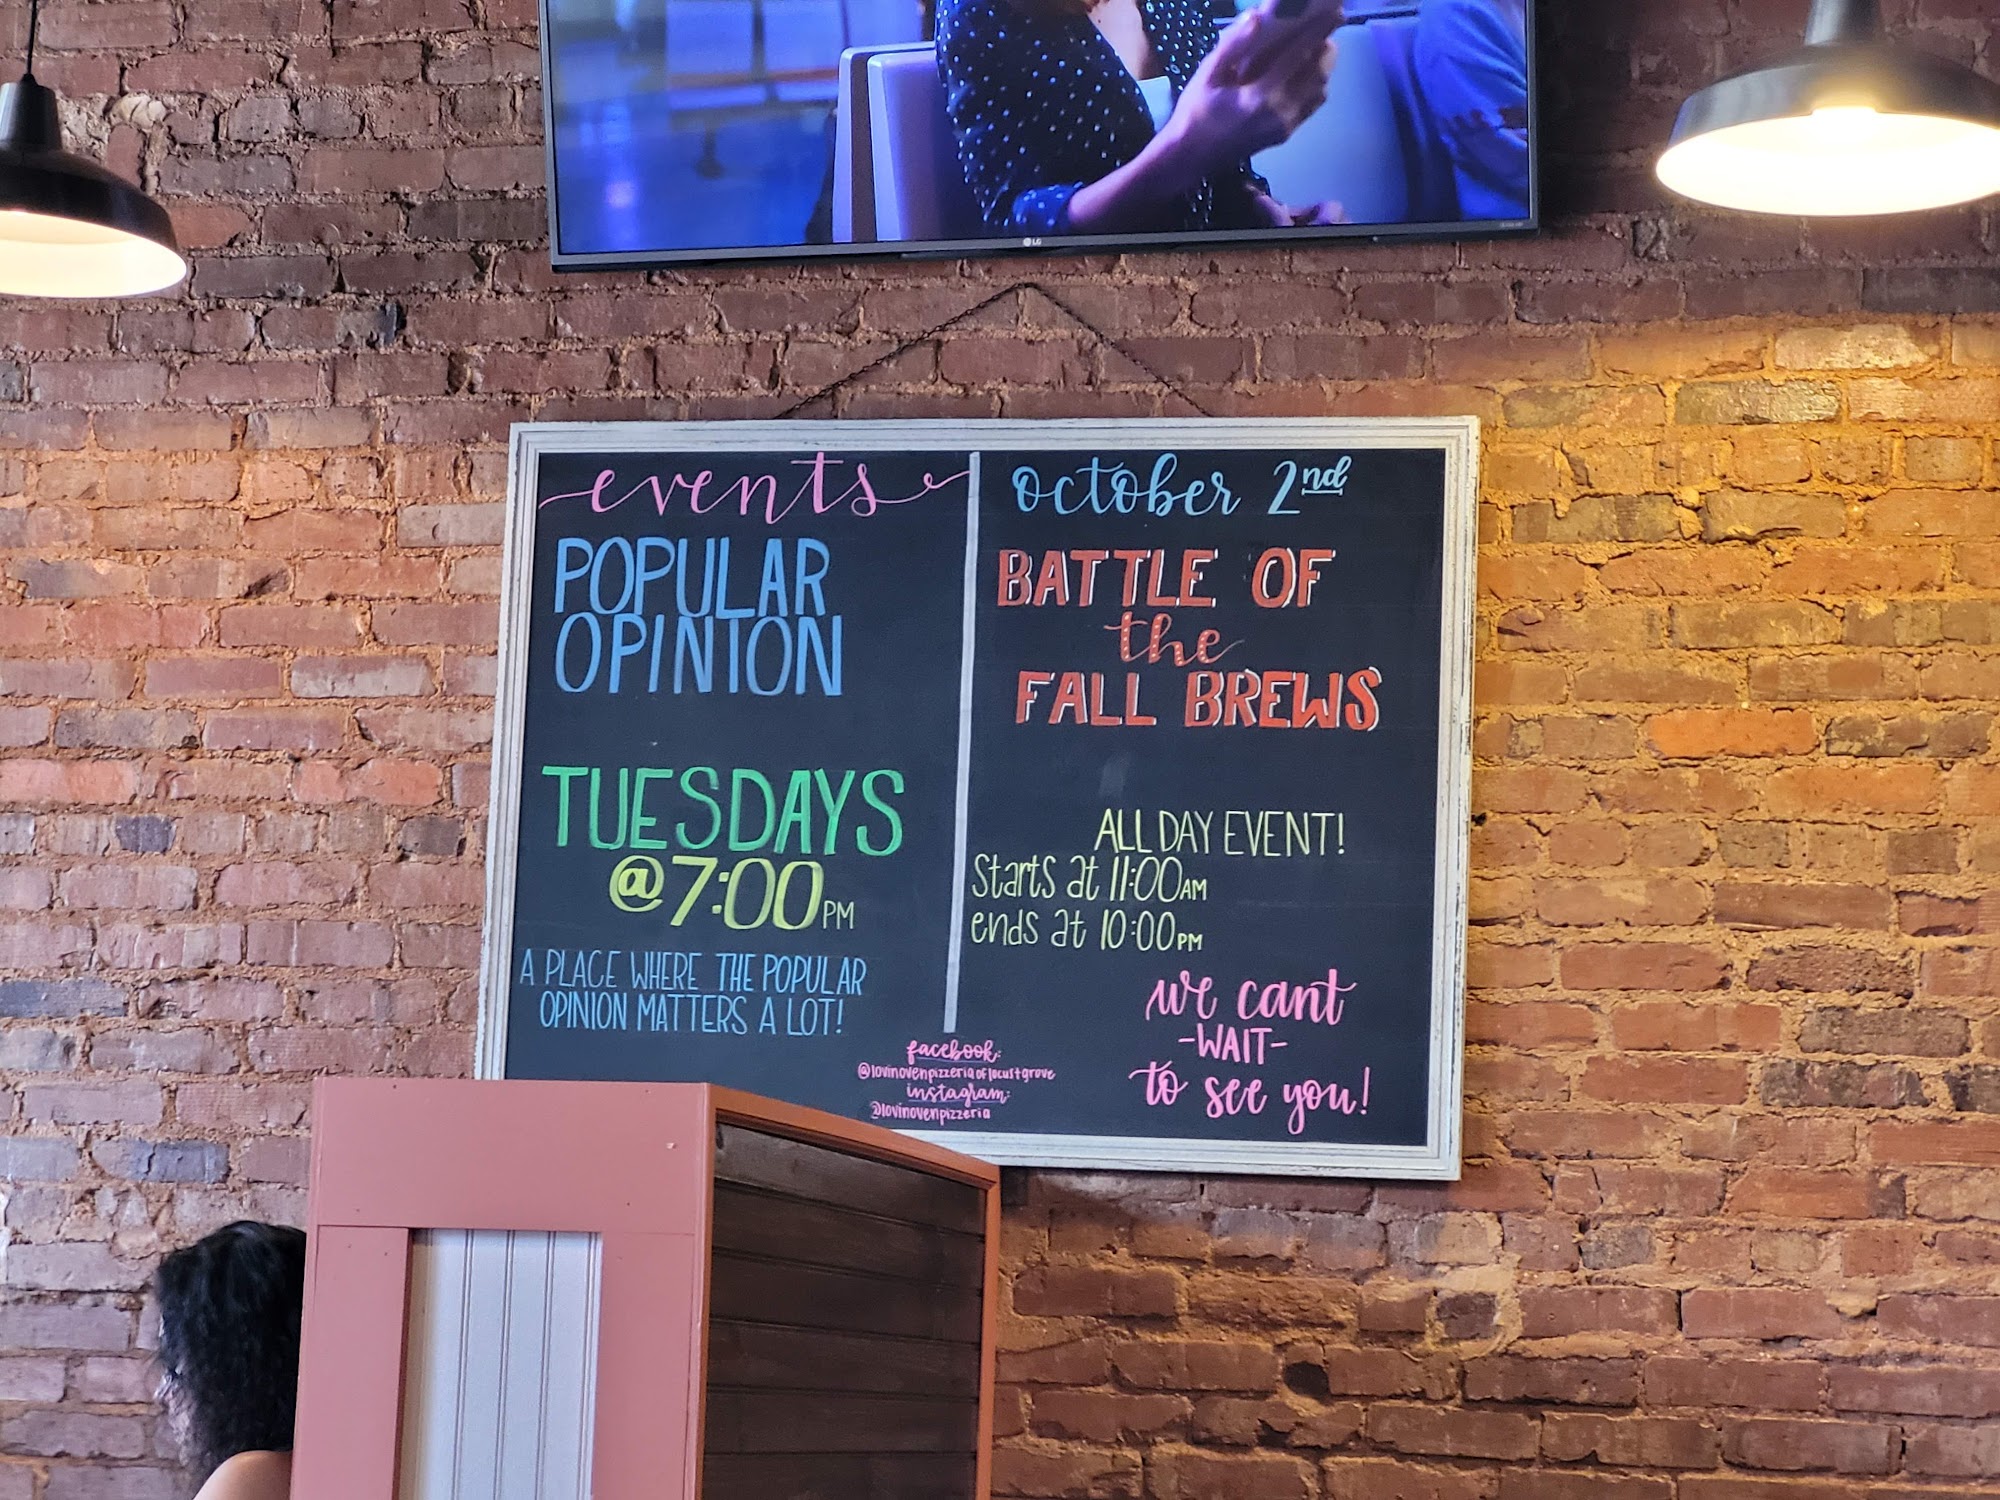 LG
events
POPULAR
OPINION
TUESDAYS
@7:00PM
A PLACE WHERE THE POPULAR
OPINION MATTERS A LOT!
october 2nd
BATTLE OF
the
FALL BREWS
ALL DAY EVENT!
starts at 11:00AM
ends at 10:00PM
we cant
-WAIT-
to see you!
facebook:
@lovinovenpizzeriaoflocustgrove
instagram:
@lovinovenpizzeria